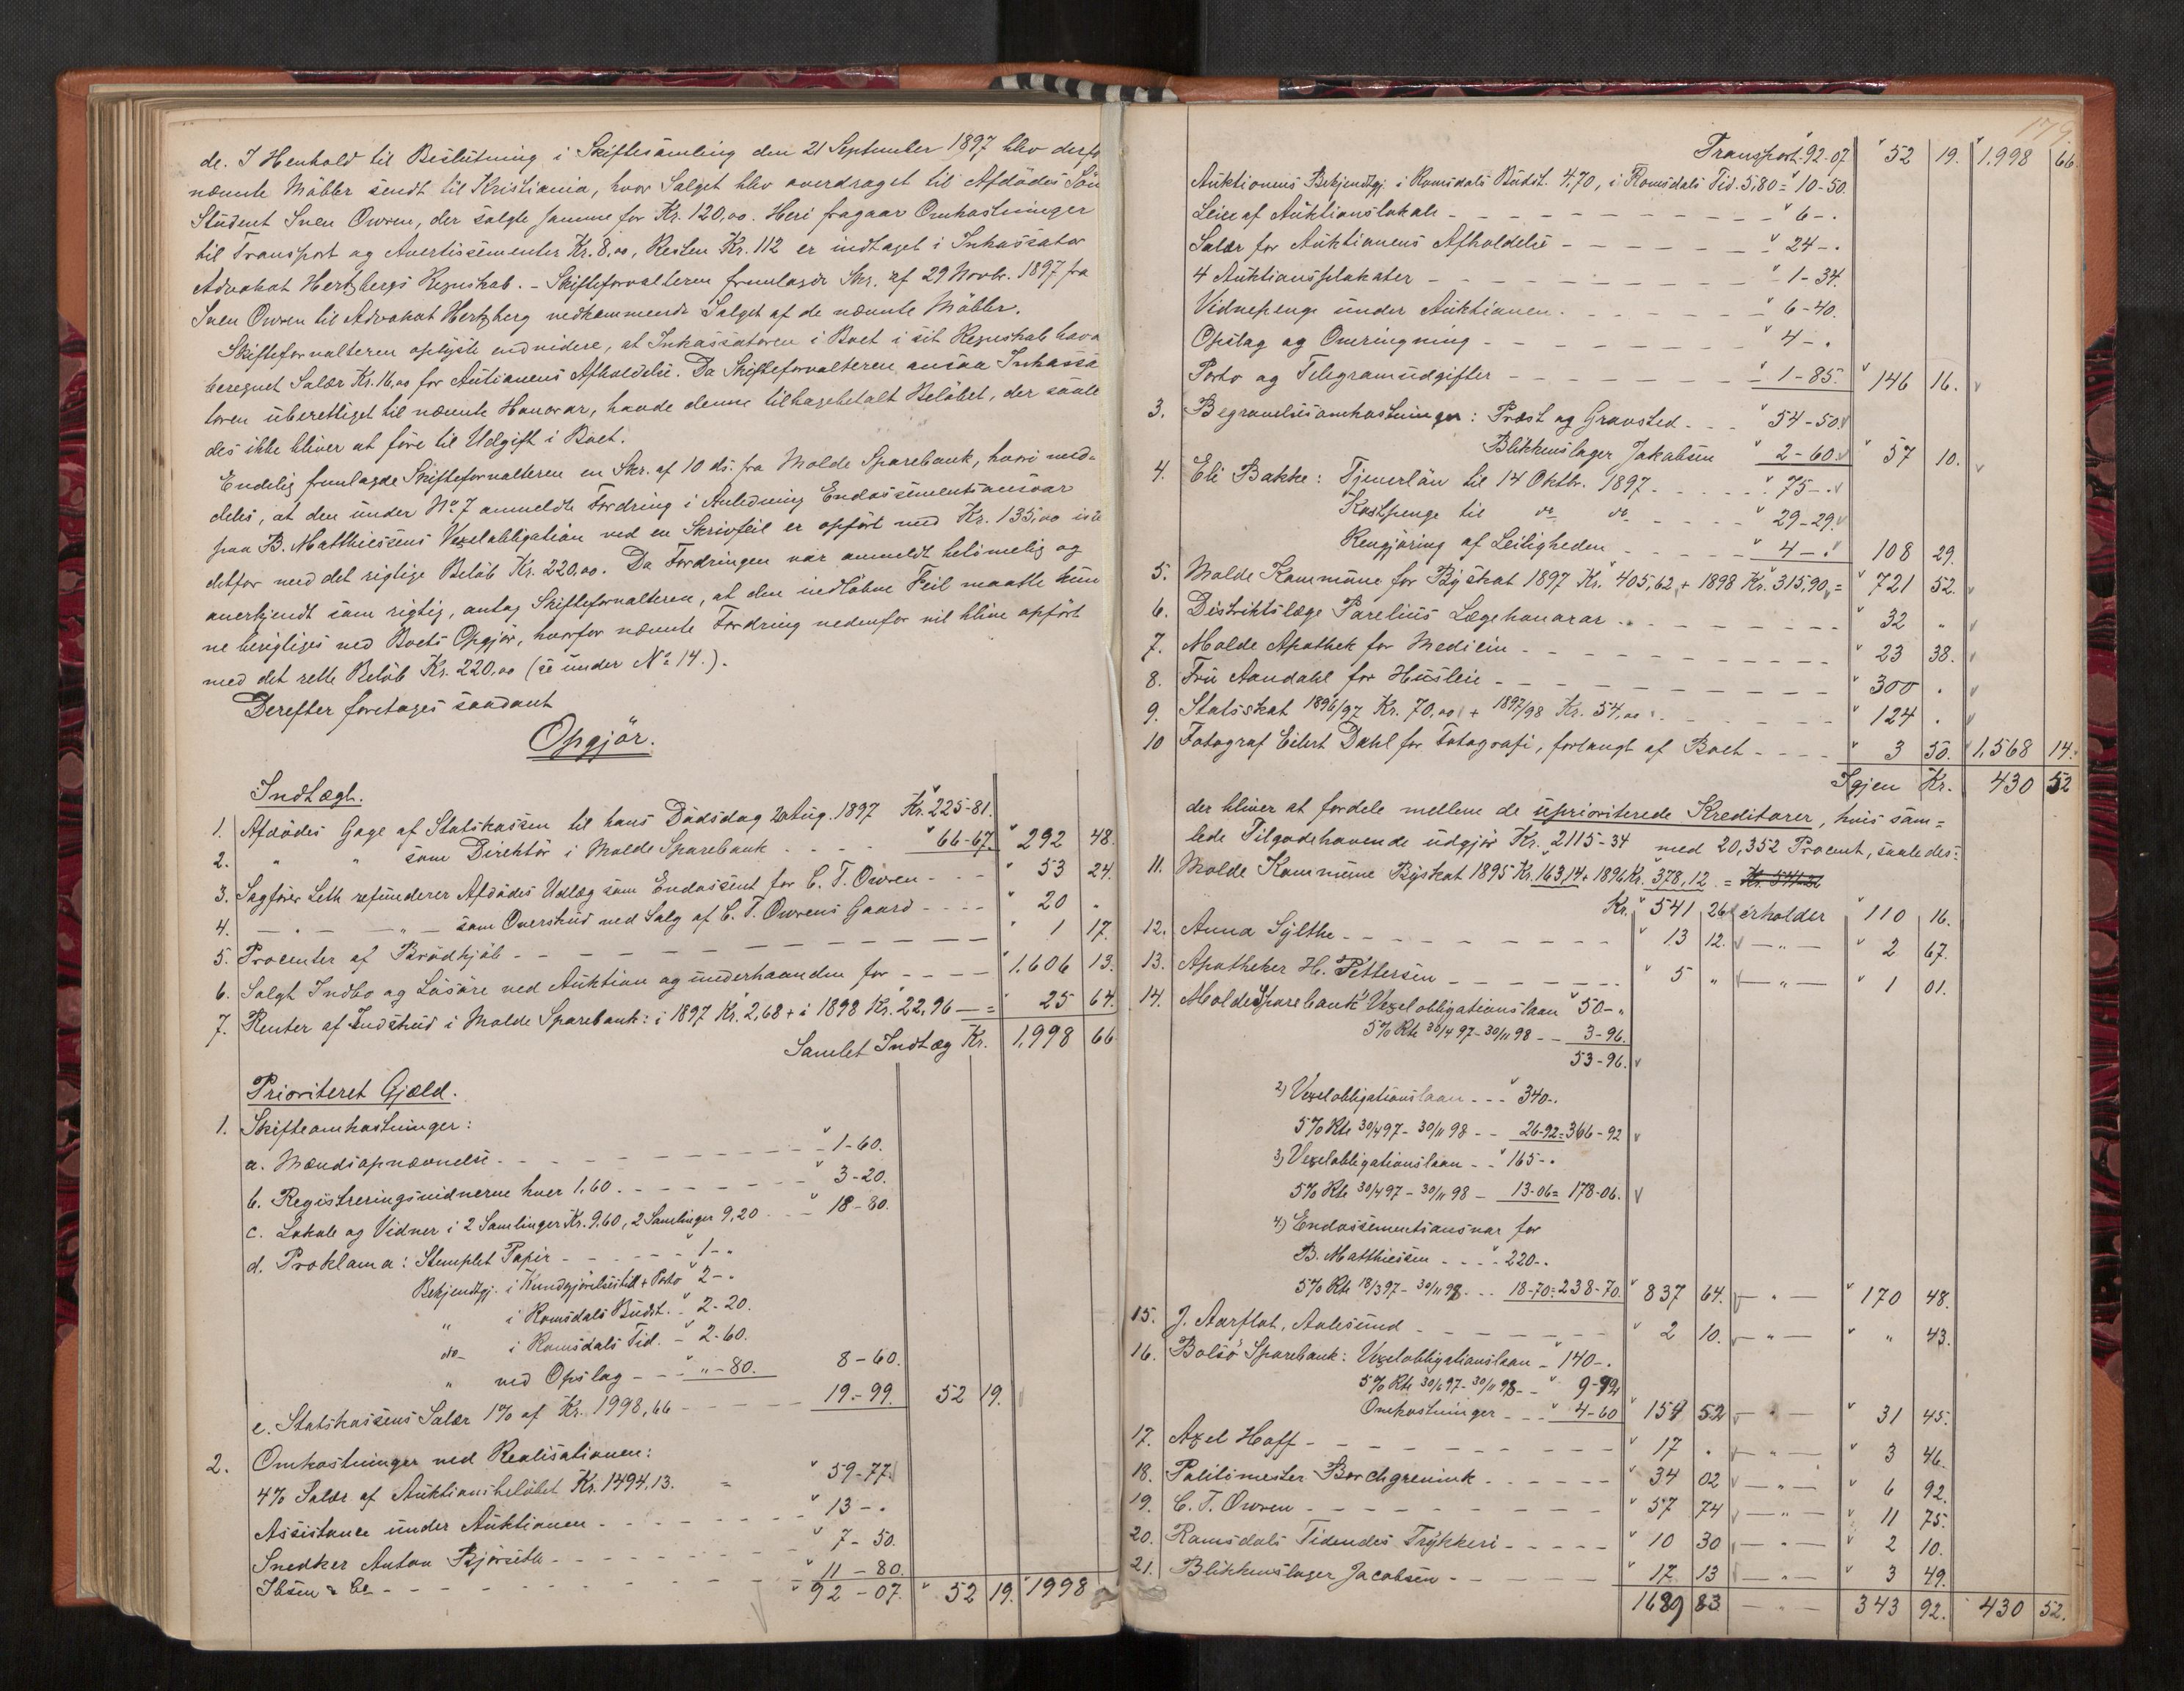 de. I Henhold til Beslutning i Skiftesamling den 21 September 1897 blev derfor
nævnte Møbler sendt til Kristiania, hvor Salget blev overdraget til Afdødes Søn
Student Sven Owren, der solgte samme for Kr. 120,00. Heri fragaar Omkostninger
til Transport og Avertissementer Kr. 8,00, Resten Kr. 112 er indtaget i Inkassator
Advokat Hertzbergs Regnskab. - Skifteforvalteren fremlagde Skr. af 29 Novbr. 1897 fra
Sven Owren til Advokat Hertzberg vedkommende Salget af de nævnte Møbler.
Skifteforvalteren oplyste endvidere, at Inkassatoren i Boet i sit Regnskab havde
beregnet Salær Kr. 16,00 for Autionens Afholdelse. Da Skifteforvalteren ansaa Inkassa
toren uberettiget til nævnte Honorar, havde denne tilbagebetalt Beløbet, der saale
des ikke bliver at føre til Udgift i Boet.
Endelig fremlagde Skifteforvalteren en Skr. af 10 ds. fra Molde Sparebank, hvori med-
deles, at den under No 7 anmeldte Fordring i Anledning Endossementsansvar
paa B. Matthiessens Vexelobligation ved en Skrivfeil er opført med Kr. 135,00 iste
detfor med det rigtige Beløb Kr. 220,00. Da Fordringen var anmeldt betimelig og
anerkjendt som rigtig, antog Skifteforvalteren, at den indløbne Feil maatte kun
ne berigtiges ved Boets Opgjør, hvorfor nævnte Fordring nedenfor vil blive opført
med det rette Beløb Kr. 220,00 (se under No 14.).
Derefter foretages saadant
Opgjør.
Indtægt.
1. Afdødes Gage af Statskassen til hans Dødsdag 20 Aug. 1897 Kr. 225-81.
2. " " som Direktør i Molde Sparebank - - - " 66-67. " 292 48.
3. Sagfører Leth refunderer Afdødes Udlæg som Endossent for C. T. Owren - - - " 53 24.
4. - " - - " - som Overskud ved Salg af C. T. Owrens Gaard - - - - " 20 "
5. Procenter af Brødkjøb - - - - - - - - - - " 1 17.
6. Solgt Indbo og Løsøre ved Auktion og underhaanden for - - - - " 1.606 13.
7. Renter af Indskud i Molde Sparebank: i 1897 Kr. 2,68 + i 1898 Kr. 22,96 - = " 25 64.
Samlet Indtæg Kr. 1,998 66
Prioriteret Gjæld.
1. Skifteomkostninger:
a. Mændsopnævnelse - - - - - - - - - " 1-60.
b. Registreringsvidnerne hver 1,60. - - - - - - " 3-20.
c. Lokale og Vidner i 2 Samlinger Kr. 9,60, 2 Samlinger 9,20 - - " 18-80.
d. Proklama: Stemplet Papir - - - - - " 1-"
Bekjendtgj. i Kundgjørelsestid + Porto " 2-"
" i Romsdals Budst. - " 2-20.
do i Romsdals Tid. - " 2-60.
" ved Opslag - - - " "-80. 8-60.
e. Statskassens Salær 1% af Kr. 1998,66 - - - - - 19-99. 52 19.
2. Omkostninger ved Realisationen:
4% Salær af Auktionsbeløbet Kr. 1494,13. = " 59-77.
Assistance under Auktionen - - - - - - - " 13-"
Snedker Anton Bjørseth - - - - - - - - " 7-50.
Ibsen & Co - - - - - - - - - " 11-80.
" 92-07. " 52 19. " 1998
179.
Transport. 92-07 " 52 19. " 1,998 66
Auktionens Bekjendtgj. i Romsdals Budst. 4,70, i Romsdals Tid. 5,80 = " 10-50.
Leie af Auktionslokale - - - - - - - - - - " 6-"
Salær for Auktionens Afholdelse - - - - - " 24-"
4 Auktionsplakater - - - - - - - - - " 1-34.
Vidnepenge under Auktionen. - - - - - " 6-40.
Opslag og Omringning - - - - - - - - " 4-"
Porto og Telegramudgifter - - - - - - " 1-85. " 146 16.
3. Begravelsesomkostninger: Præst og Gravsted - - - " 54-50.
Blikkenslager Jakobsen " 2-60. " 57 10.
4. Eli Bakke: Tjenerløn til 14 Oktbr. 1897 - - - - - " 75-"
Kostpenge til do do - - - - " 29-29.
Rengjøring af Leiligheden - - - - - " 4-" 108 29.
5. Molde Kommune for Byskat 1897 Kr. 405,62 + 1898 Kr. 315,90, = " 721 52.
6. Distriktslæge Parelius Lægehonorar - - - - - - - " 32 "
7. Molde Apothek for Medicin - - - - - - - - - - " 23 38.
8. Fru Aandahl for Husleie - - - - - - - - - - " 300 .
9. Statsskat 1896/97 Kr. 70,00 + 1897/98 Kr. 54,00 - - - - - " 124 .
10 Fotograf Eilert Dahl for Fotografi, forlangt af Boet - - - - " 3 50. 1,568 14.
Igjen Kr. 430 52
der bliver at fordele mellem de uprioriterede Kreditorer, hvis sam=
lede Tilgodehavende udgjør Kr. 2115-34 med 20,352 Procent, saaledes:
11. Molde Kommune Byskat 1895 Kr. 163,14 + 1896 Kr. 378,12 = Kr. 541-26
Kr. 541 26 erholder " 110 16.
12. Anna Sylthe - - - - - - - - - " 13 12. - " - " 2 67.
13. Apotheker H. Pettersen - - - - - - - " 5 " - " - " 1 01.
14. Molde Sparebank 1) Vexelobligationslaan " 50-"
5% Rte 30/4 97-30/11 98 - - 3-96.
53-96.
2) Vexelobligationslaan - - - " 340-.
5% Rte 30/4 97-30/11 98 - - 26-92 = 366-92
3) Vexelobligationslaan - - " 165-.
5% Rte 30/4 97-30/11 98 - 13-06 = 178-06.
4) Endossementsansvar for
B. Matthiessen - - - - " 220-.
5% Rte 18/3 97-30/11 98 - - - 18-70 = 238-70. " 837 64. - " - " 170 48.
15. J. Aarflot, Aalesund - - - - - - - " 2 10. - " - " " 43.
16. Bolsø Sparebank: Vexelobligationslaan - " 140-.
5% Rte 30/6 97-30/11 98 - - " 9-92
Omkostninger - - - " 4-60 " 154 52 - " - " 31 45.
17. Axel Hoff - - - - - - - - - - " 17 . - " - " 3 46.
18. Politimester Borchgrevink - - - - - - " 34 02 - " - " 6 92.
19. C. T. Owren - - - - - - - - - " 57 74 - " - " 11 75.
20. Romsdals Tidendes Trykkeri - - - - - " 10 30 - " - " 2 10.
21. Blikkenslager Jacobsen - - - - - - " 17 13 - " - " 3 49.
1689 83 - " - 343 92. 430 52.